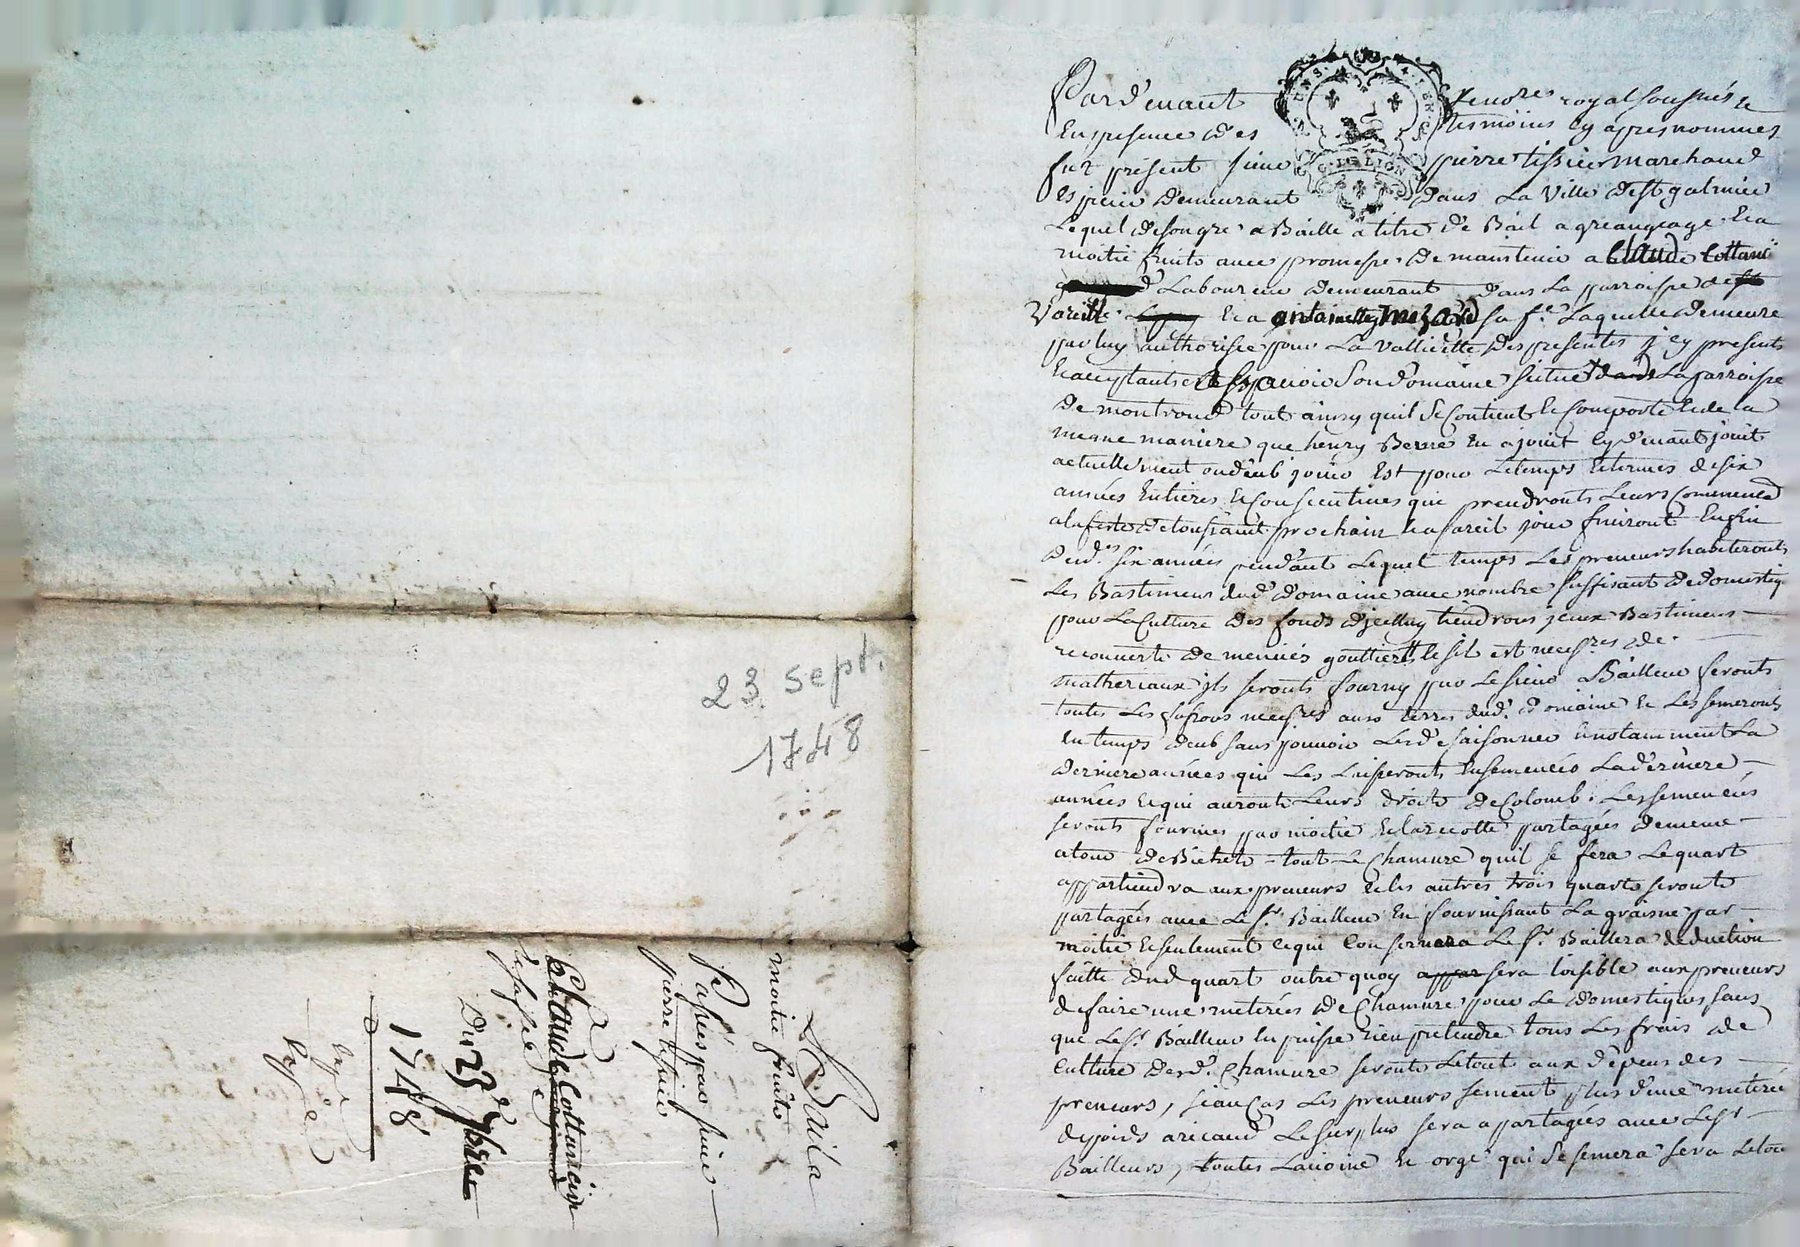 23. sept.
1748
Bail a
moitié fruits
Passé par sieur
pierre tissier
A
Claude Cottancin
et sa fe
Du 23e 7bre
1748
Pardevant notaire royal soussigné et
En presence des tesmoins cy apres nommes
fut présent sieur pierre tissier marchand
espicier demeurant dans La Ville de st galmier
Lequel de son gre a Baille a titre de Bail a greangeage et a
moitié fruits avec promesse de maintenir a Claude Cottancin
Laboureur demeurant dans La parroisse de
Et a antoinette mezard sa fe. Laquelle demeure
par luy authorisée pour La vallidette des presentes cy presents
Et acceptants sçavoir Son domaine scitué La parroisse
De montrond tout ainsy quil se Contient Et Comporte Et de la
mesme maniere que henry Berne En a jouit cy devant jouit
actuellement ou deub jouir Est pour Le temps Et termes de six
années Entieres Et Consecutives qui prendronts Leurs Commence
a la feste de toussaint prochain Et a pareil jour finiront En fin
Desd. six années pendant Lequel temps Les preneurs habiteronts
Les Bastimens dud. domaine avec nombre suffisant de domestiq
pour La Culture des fonds d'jcelluy tiendrons jceux Bastimens
recouverts de menües gouttieres sil est necessres de
matheriaux jls seronts fourny par Le sieur Bailleur feronts
toutes Les necessres aux terres dud. domaine Et Les semeronts
En temps deub sans pouvoir Les desaisonner Et notamment La
derniere années qui Les Laisseronts Ensemencés La derniere
années Et qui auronts Leurs droits de Colomb. Les semences
seronts fournies par moitié Et La recolte partagées de meme
tout Le Chamure quil se fera Le quart
appartiendra aux preneurs Et les autres trois quarts seronts
partagés avec Le sr. Bailleur En fournissant La graisne par
moitié Et seulement Le sr. Baillera deduction
faitte dud quart outre quoy sera loisible aux preneurs
de faire une metérée de Chamure pour Le domestiques sans
que Le sr. Bailleur En puisse rien pretendre tous Les frais de
Culture dud. Chamure seronts Le tout aux depens des
preneurs, si au Cas Les preneurs sement plus d'une meterée
Le surplus sera a partagés avec Le sr
Bailleurs, toutes L'avoine Et orge qui se semera sera Le tou